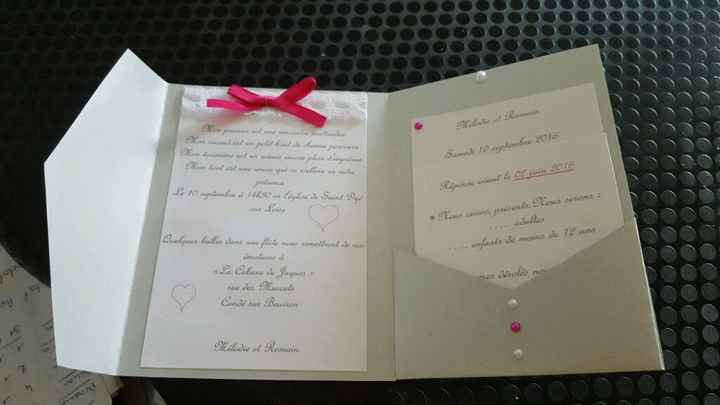 Mon premier est une rencontre inattendue
Mon second est un petit bout de chemin parcouru
Mon troisième est un avenir encore plein d'
Mon tout est une union qui se scellera en votre
présence
Le 10 septembre à 14h30 en l'église de Saint Dyé
sur Loire
Quelques bulles dans une flûte nous remettront de nos
émotions à
« La Cabane de Jacques »
rue des Muscats
Candé sur Beuvron
Mélodie et Romain
Mélodie et Romain
Samedi 10 septembre 2016
Réponse avant le 02 juin 2016
Nous serons présents. Nous serons :
..... adultes
..... enfants de moins de 12 ans
mes désolés, no